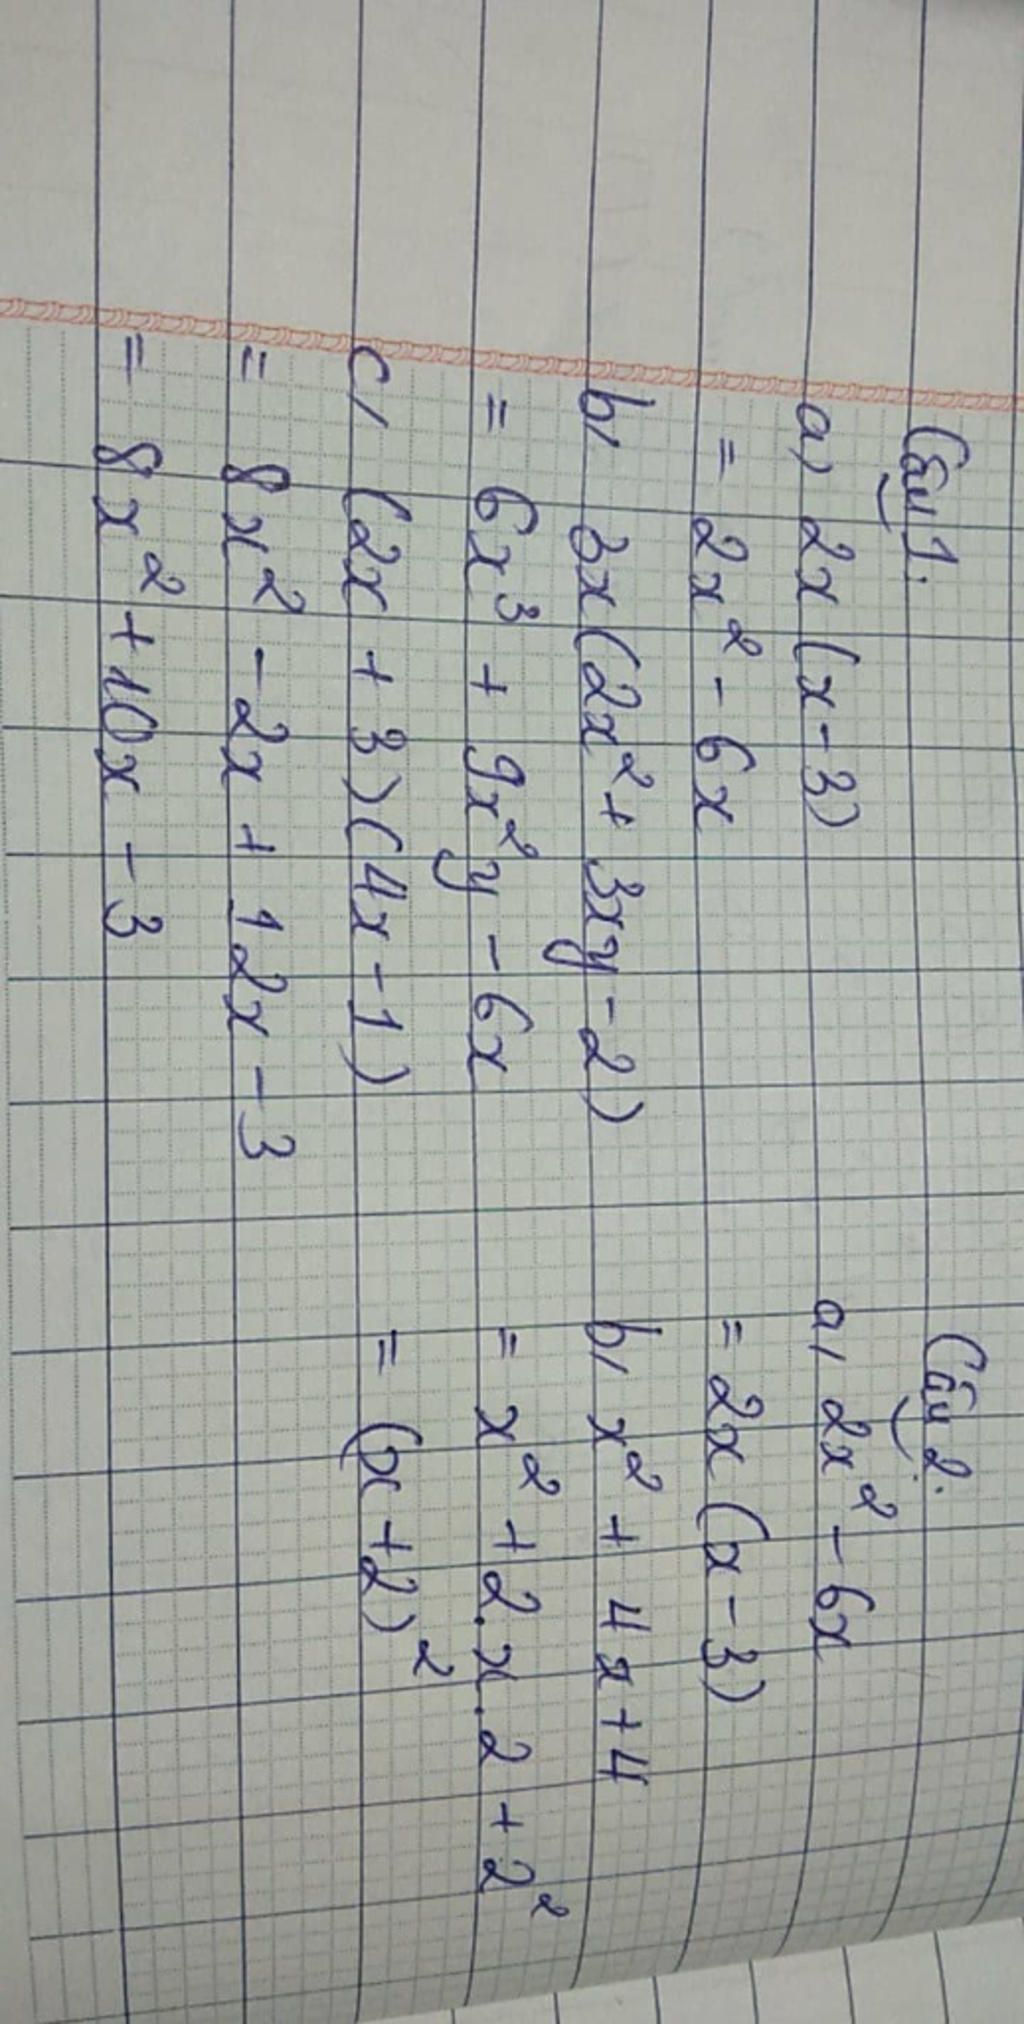 Câu 1.
a, 2x(x-3)
= 2x² - 6x
b, 3x(2x² + 3xy - 2)
= 6x³ + 9x²y - 6x
c, (2x + 3)(4x - 1)
= 8x² - 2x + 12x - 3
= 8x² + 10x - 3
Câu 2.
a, 2x² - 6x
= 2x(x - 3)
b, x² + 4x + 4
= x² + 2.x.2 + 2²
= (x + 2)²